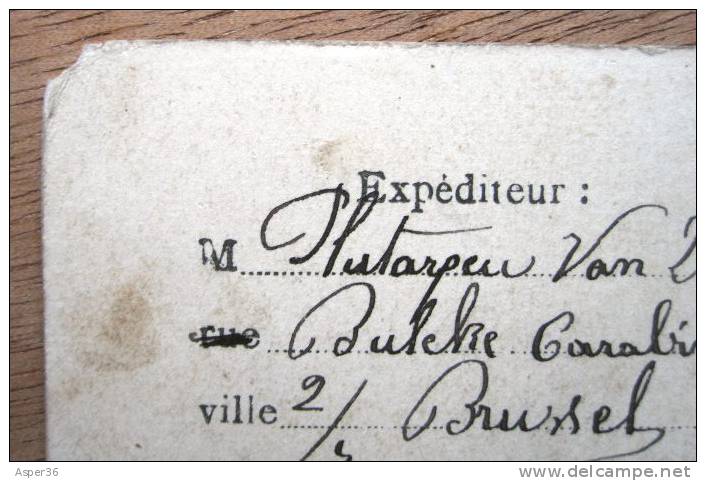 Expéditeur :
M Plutarpeu Van
rue Buleke Carabi
ville 2/ Brussel
Asper36
delcampe.net